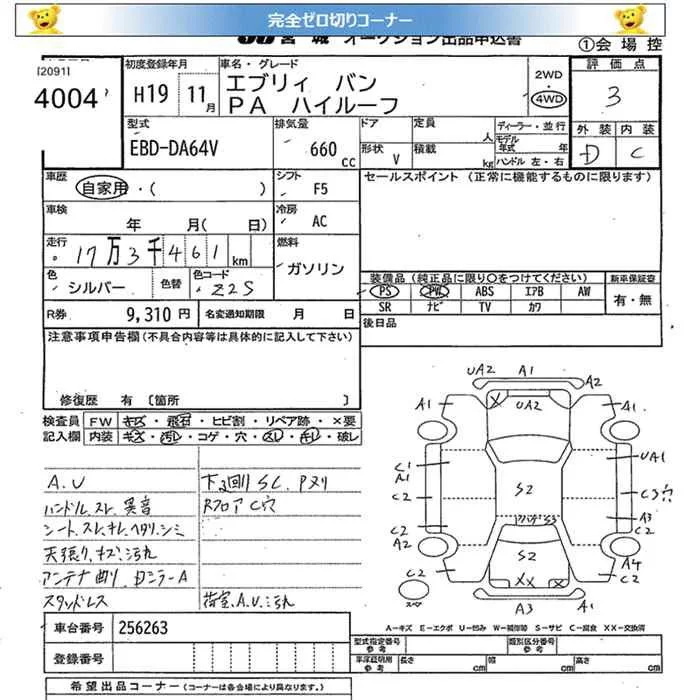 完全ゼロ切りコーナー
宮城 オークション出品申込書
①会場控
[2091]
4004
初度登録年月
H19 11月
車名・グレード
エブリィ バン
PA ハイルーフ
2WD
4WD
評価点
3
外装 内装
D C
型式
EBD-DA64V
排気量
660 cc
ドア
形状 V
定員 人
積載 kg
ディーラー・並行
モデル年式 年
ハンドル 左・右
車歴
自家用・( )
シフト
F5
セールスポイント (正常に機能するものに限ります)
車検
年 月( 日)
冷房
AC
走行
17万3千461km
燃料
ガソリン
色
シルバー
色替
色コード
Z2S
装備品(純正品に限り○をつけてください)
新車保証書
PS PW ABS エアB AW
SR ナビ TV カワ
有・無
R券 9,310円
名変通知期限 月 日
後日品
注意事項申告欄(不具合内容等は具体的に記入して下さい)
修復歴 有 [箇所 ]
検査員記入欄
FW キズ・飛石・ヒビ割・リペア跡・×要
内装 キズ・汚レ・コゲ・穴・スレ・キレ・破レ
A.V
ハンドル.スレ 異音
シート.スレ.キレ.ヘタリ.シミ
天張り.キズ.汚れ
アンテナ曲り.DミラーA
スタッドレス
下回り SC.Pヌリ
Rフロア C穴
荷室.A.V.汚れ
UA2 A1 A2
A1 UA2 A1
C1
A1
C2
C2
A2
C2
S2
S2
UA1
C3穴
A3
C2
A4
C2
XX
A3 A1
スペア
A-キズ E-エクボ U-凹み W-補修跡 S-サビ C-腐食 XX-交換済
車台番号 256263
登録番号
型式指定番号 参考
類別区分番号 参考
車庫証明用 参考
長さ cm 幅 cm 高さ cm
希望出品コーナー (コーナーは各会場により異なります。)